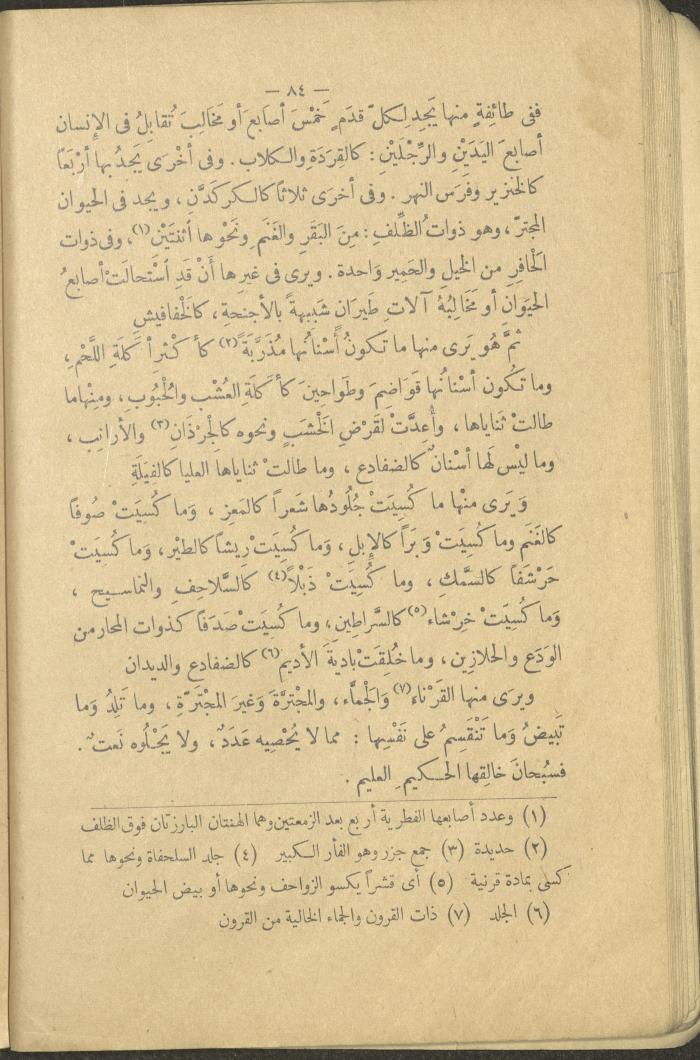 — ٨٤ —
ففى طائِفةٍ منها يَجِد لِكلّ قدَمٍ خَمْسَ أصابعَ أو مَخَالبَ تُقابِلُ فى الإنسان
أصابعَ اليَدَيْنِ والرِّجْلَيْنِ : كالقِرَدَةِ والكلاب . وفى أُخْرَى يَجدُ بها أرْبَعًا
كالخنزير وفَرَس النهر . وفى أخرَى ثلاثًا كالكركَدَّنِ ، ويجد فى الحيوان
المجترّ ، وهو ذوات ُالظِّلفِ : مِنَ البَقَرِ والغَنَمِ ونَحْوِها اثْنَتَيْنِ (١) ، وفى ذوات
الحَافِرِ من الخيل والحَمِير وَاحدة . ويرى فى غيرها أَنْ قَدِ اسْتحالَتْ أصابعُ
الحيوَان أو مَخَالبُهُ آلاتِ طَيرَانٍ شَبيهةً بالأجنحَةِ ، كالخْفافيشِ
ثمَّ هُو يَرى منها ما تكونُ أسْنانُها مُذَرَّبَةً (٢) كأكْثرِ أَكَلَةِ اللَّحْمِ ،
وما تكُون أسْنانُها قَوَاضِمَ وطَواحينَ كأَكلَةِ العُشْبِ والحُبُوبِ ، ومِنْها ما
طالتْ ثَناياها ، وأُعِدَّتْ لقَرْضِ الخْشَبِ ونحوه كالجْرْذَانِ (٣) والأرانِب ،
وما ليْس لَها أسْنانٌ كالضفادع ، وما طالتْ ثناياها العليا كالفِيَلَةِ
وَيَرى منْها ما كُسِيَتْ جُلُودُها شَعراً كالمَعزِ ، وَما كُسِيَتْ صُوفًا
كالغَنَم وما كُسِيَتْ وَبَراً كالإِبلِ ، وَما كُسيَتْ رِيشًا كالطيْر ، وَما كُسِيَتْ
حَرْشَفًا كالسَّمَكِ ، وما كُسِيَتْ ذَبْلاً (٤) كالسَّلاحِفِ والتماسيح ،
وَما كُسيَتْ خِرْشاء (٥) كالسَّراطِينِ ، وما كُسيَتْ صَدَفًا كذوات المحار من
الوَدَع والحلازِين ، وما خُلقَتْ بادِيةَ الأديمِ (٦) كالضفادع والديدان
ويرى منها القَرْناء (٧) وَالجْمَّاء ، والمجْتَرَّةَ وَغيرَ المجْتَرَّةِ ، وما تَلِدُ وَما
تَبِيضُ وَما تَنْقَسمُ على نَفْسِها : مما لا يُحْصِيه عَدَدٌ ، ولا يَجْلُوه نَعتٌ .
فسُبْحانَ خالِقِها الحكيمِ العليم .
(١) وعدد أصابعها الفطرية أربع بعد الزمعتين وهما الهنتان البارزتان فوق الظلف
(٢) حديدة (٣) جمع جرز وهو الفأر الكبير (٤) جلد السلحفاة ونحوها مما
كسى بمادة قرنية (٥) أى قشراً يكسو الزواحف ونحوها أو بيض الحيوان
(٦) الجلد (٧) ذات القرون والجماء الخالية من القرون